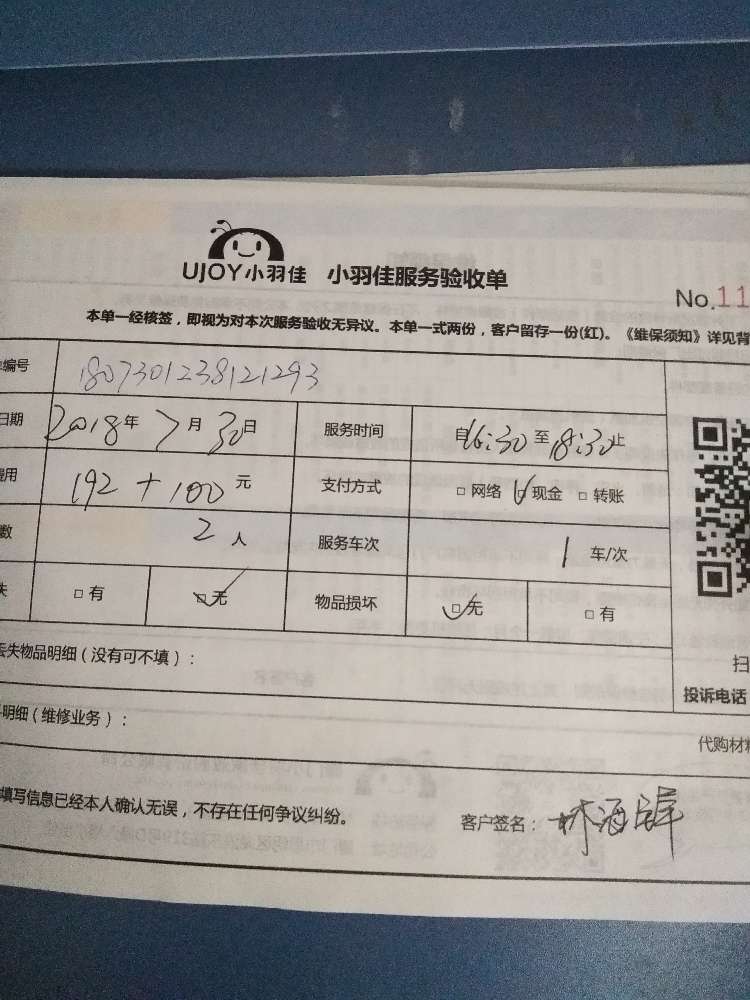 UJOY小羽佳 小羽佳服务验收单
No.11
本单一经核签，即视为对本次服务验收无异议。本单一式两份，客户留存一份(红)。《维保须知》详见背
编号 1807301238121293
日期 2018年7月30日 服务时间 自16:30至18:30止
费用 192+100元 支付方式 □网络 ☑现金 □转账
数 2人 服务车次 1车/次
失 □有 ☑无 物品损坏 ☑无 □有
丢失物品明细（没有可不填）：
扫
投诉电话
明细（维修业务）：
代购材料
填写信息已经本人确认无误，不存在任何争议纠纷。
客户签名：林酒